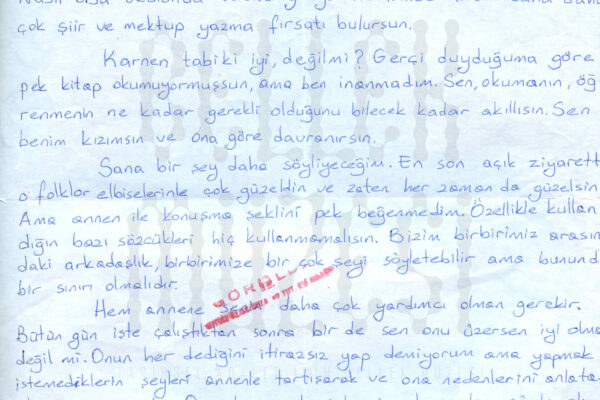 çok şiir ve mektup yazma fırsatı bulursun.
Karnen tabiki iyi, değilmi? Gerçi duyduğuma göre
pek kitap okumuyormuşsun, ama ben inanmadım. Sen, okumanın, öğ
renmenin ne kadar gerekli olduğunu bilecek kadar akıllısın. Sen
benim kızımsın ve ona göre davranırsın.
Sana bir şey daha söyliyeceğim. En son açık ziyarett
o folklor elbiselerinle çok güzeldin ve zaten her zaman da güzelsin
Ama annen ile konuşma şeklini pek beğenmedim. Özellikle kullan
dığın bazı sözcükleri hiç kullanmamalısın. Bizim birbirimiz arasın
daki arkadaşlık, birbirimize bir çok şeyi söyletebilir ama bunund
bir sınırı olmalıdır.
Hem annene senin daha çok yardımcı olman gerekir.
Bütün gün işte çalıştıktan sonra bir de sen onu üzersen iyi olma
değil mi. Onun her dediğini itirazsız yap demiyorum ama yapmak
istemediklerin şeyleri annenle tartışarak ve ona nedenlerini anlata